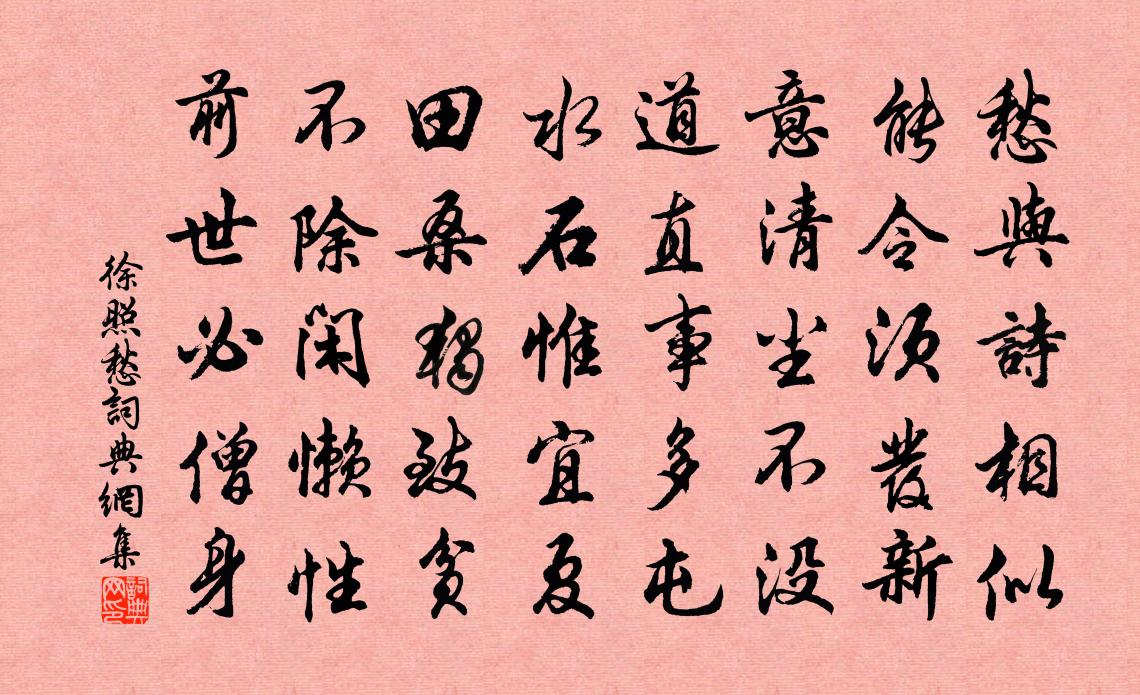 愁與詩相似
能令須發新
意清塵不没
道直事多屯
水石惟宜夏
田桑獨致貧
不除閑懶性
前世必僧身
徐照愁詞典網集
詞典网印